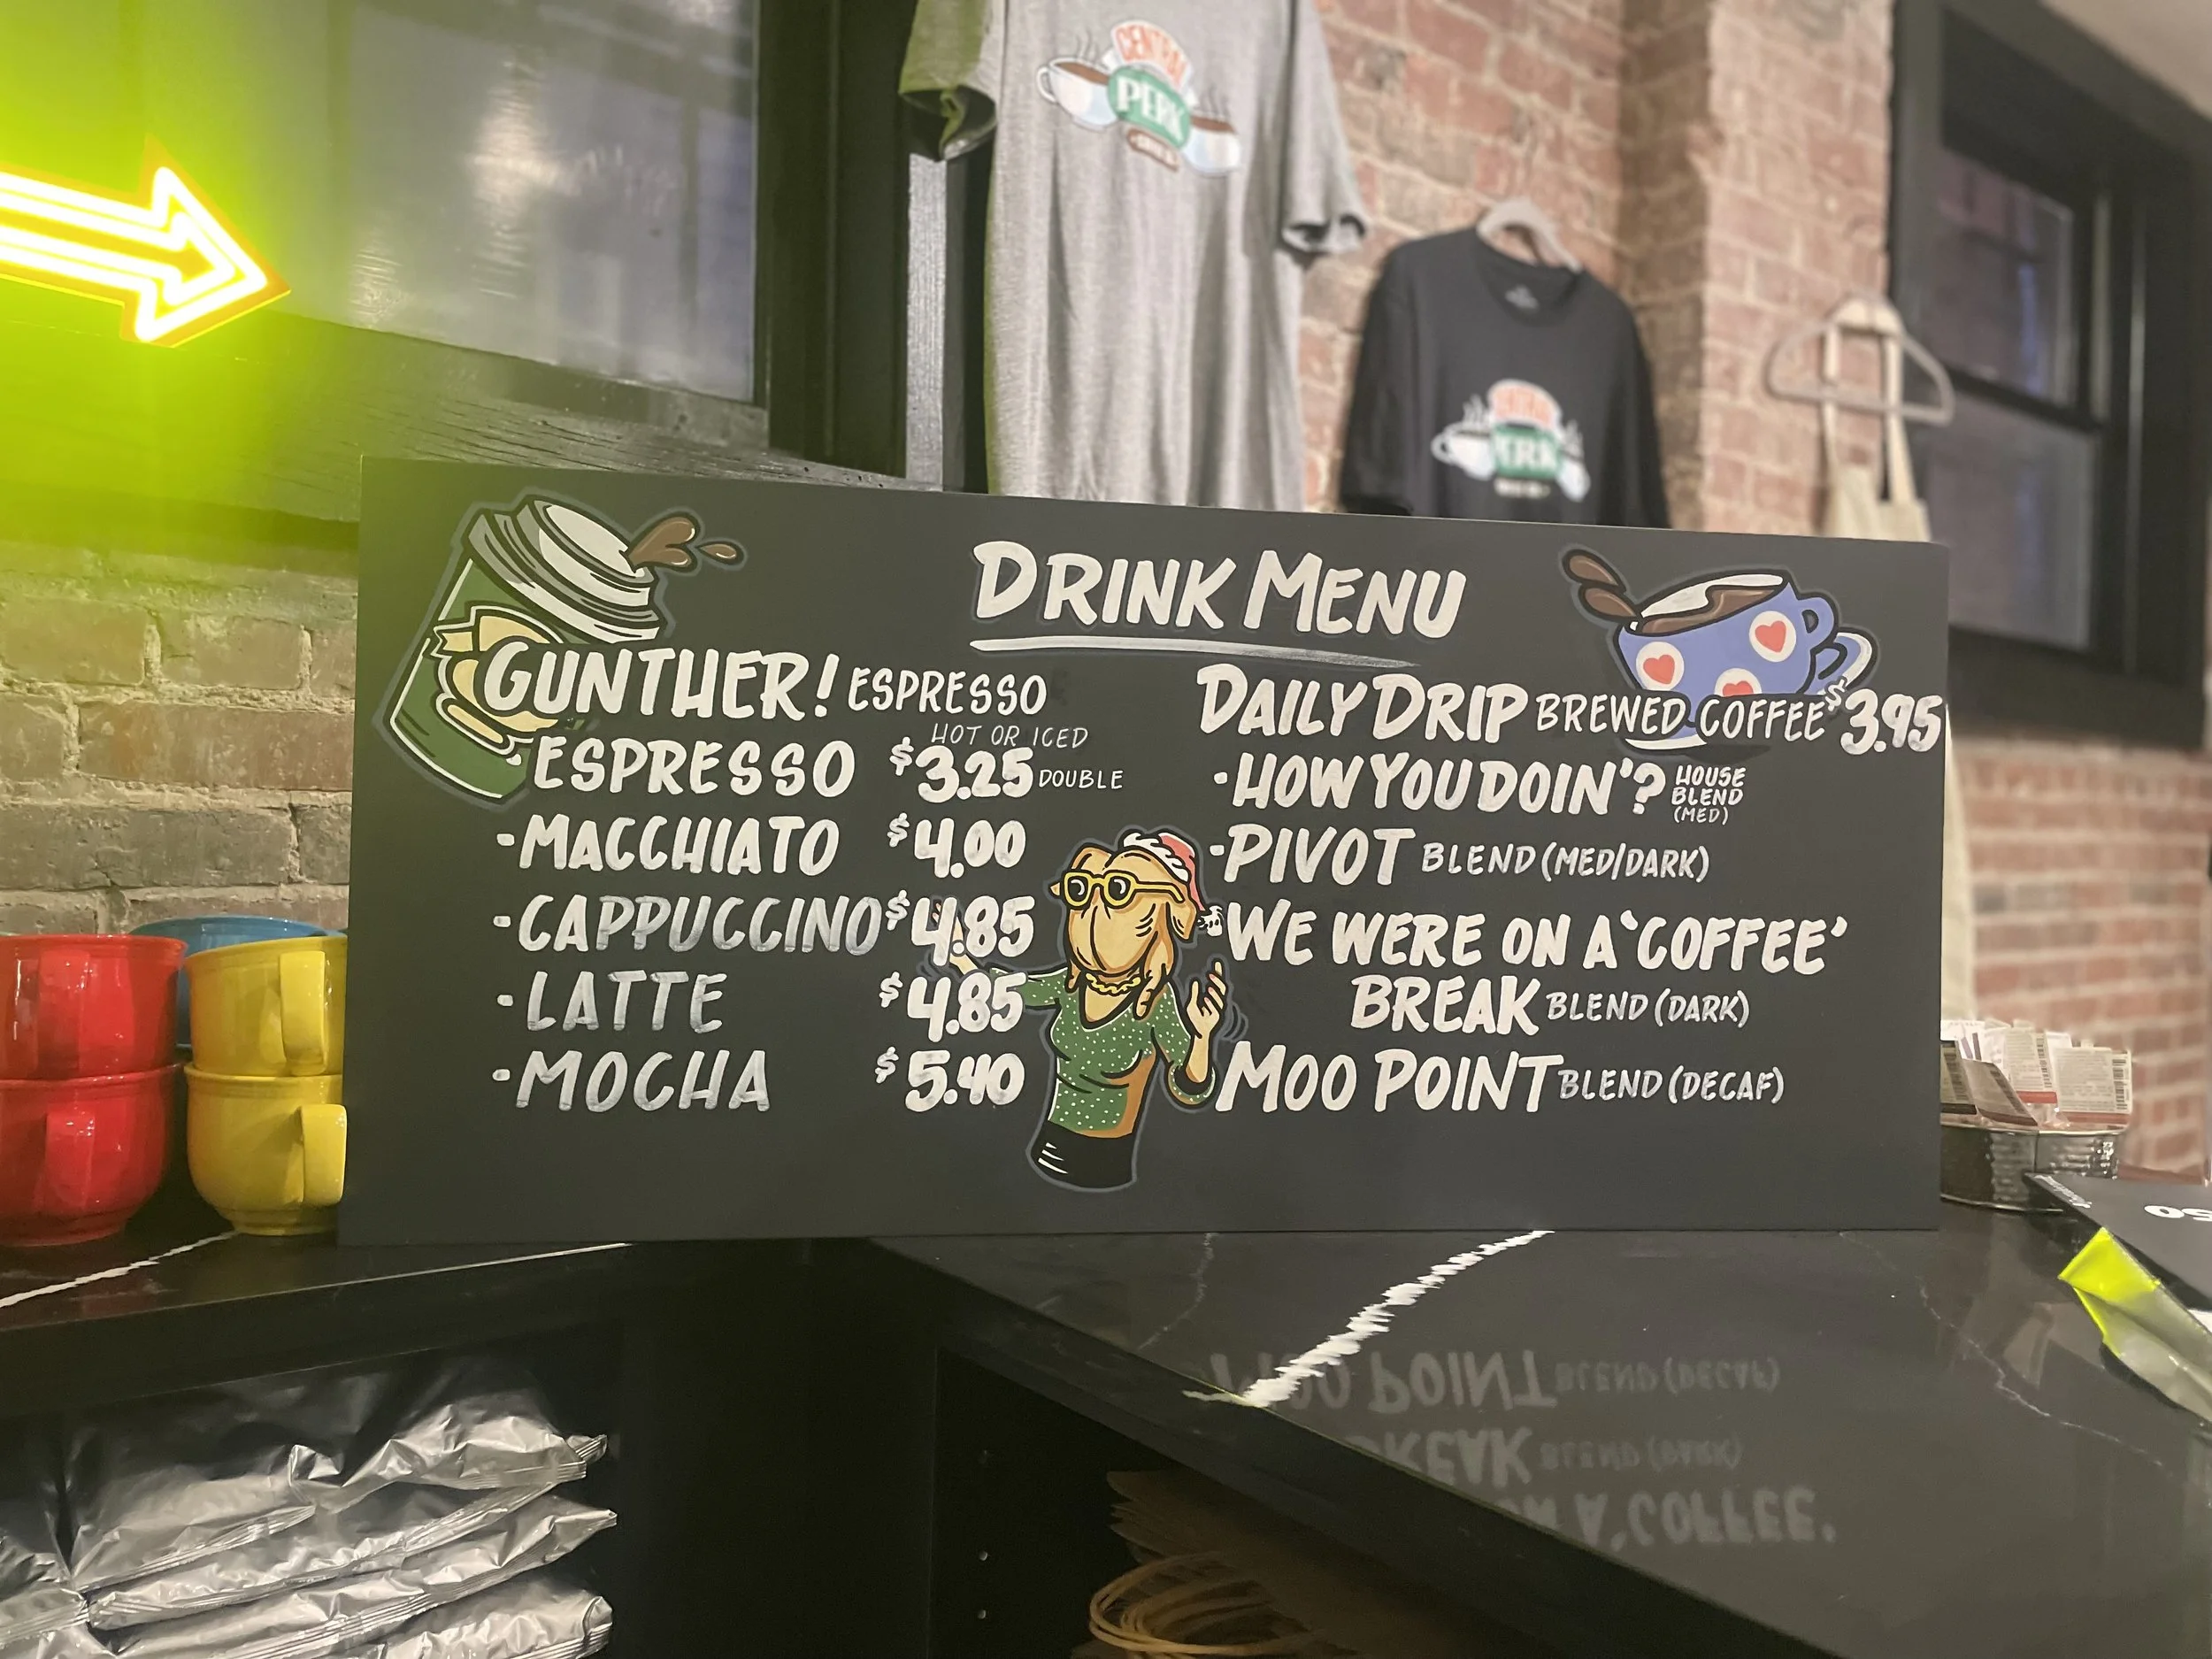 CENTRAL
PERK
CENTRAL
PERK
DRINK MENU
GUNTHER! ESPRESSO
HOT OR ICED
• ESPRESSO $3.25 DOUBLE
-MACCHIATO $4.00
-CAPPUCCINO $4.85
-LATTE $4.85
-MOCHA $5.40
DAILY DRIP BREWED COFFEE $3.95
·HOW YOU DOIN'? HOUSE
BLEND
(MED)
·PIVOT BLEND (MED/DARK)
WE WERE ON A 'COFFEE'
BREAK BLEND (DARK)
MOO POINT BLEND (DECAF)